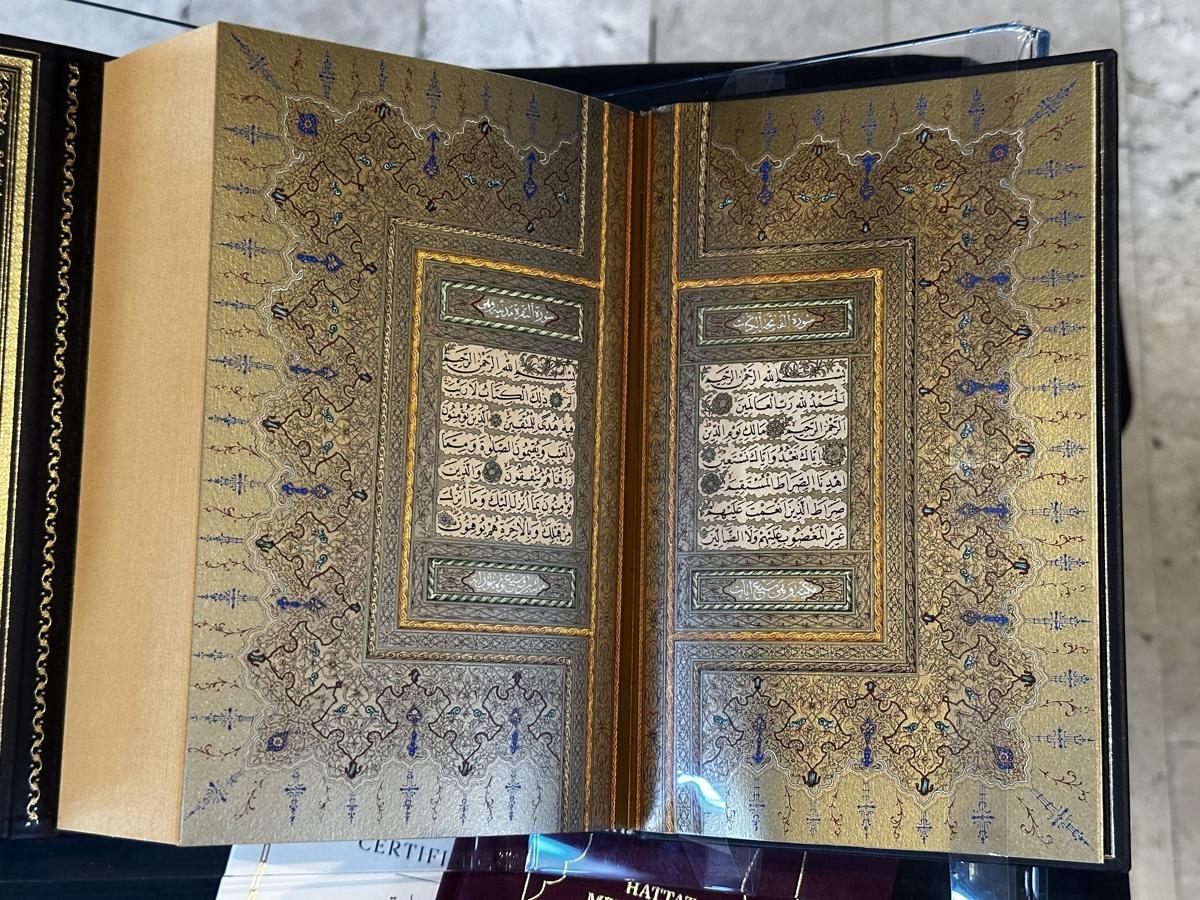 سورة الفاتحة الكتاب
بسم الله الرحمن الرحيم
الحمد لله رب العالمين
الرحمن الرحيم مالك يوم الدين
اياك نعبد واياك نستعين
اهدنا الصراط المستقيم
صراط الذين انعمت عليهم
غير المغضوب عليهم ولا الضالين
سبع ايات
سورة البقرة مدنية وهى
بسم الله الرحمن الرحيم
الم ذلك الكتاب لا ريب
فيه هدى للمتقين الذين يؤمنون
بالغيب ويقيمون الصلوة ومما
رزقناهم ينفقون والذين
يؤمنون بما انزل اليك وما انزل
من قبلك وبالاخرة هم يوقنون
CERTIFI
HATTAT